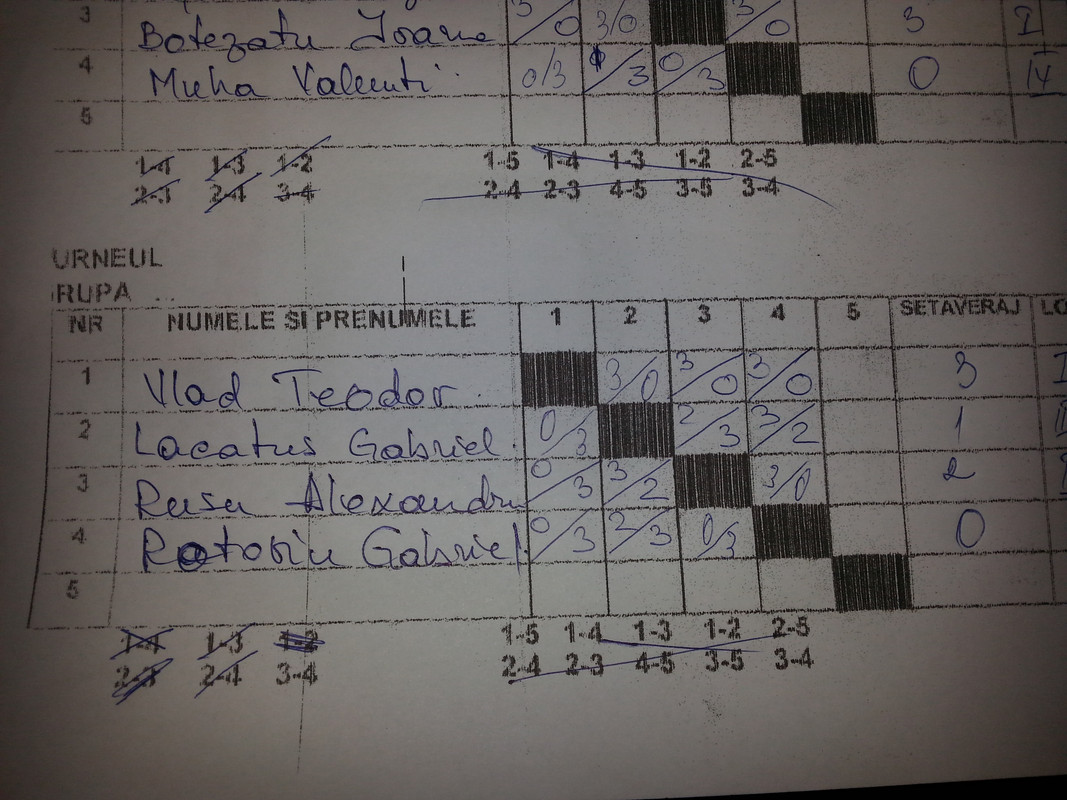 3 Botezatu Ioana 3/0 3/0 3/0 3 I
4 Muha Valenti 0/3 0/3 0 IV
5
1-4 1-3 1-2 1-5 1-4 1-3 1-2 2-5
2-3 2-4 3-4 2-4 2-3 4-5 3-5 3-4
URNEUL
RUPA ...
NR NUMELE SI PRENUMELE 1 2 3 4 5 SETAVERAJ LO
1 Vlad Teodor 3/0 3/0 3/0 3 I
2 Lacatus Gabriel 0/3 2/3 3/2 1
3 Rusu Alexandru 0/3 3/2 3/0 2
4 Rotoriu Gabriel 0/3 2/3 0/3 0
5
1-4 1-3 1-2 1-5 1-4 1-3 1-2 2-5
2-3 2-4 3-4 2-4 2-3 4-5 3-5 3-4